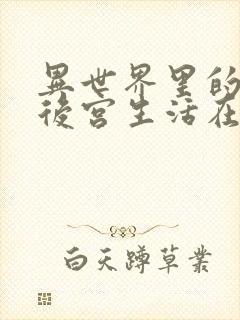 異世界里的
後宮生活在
白天蹲草叢